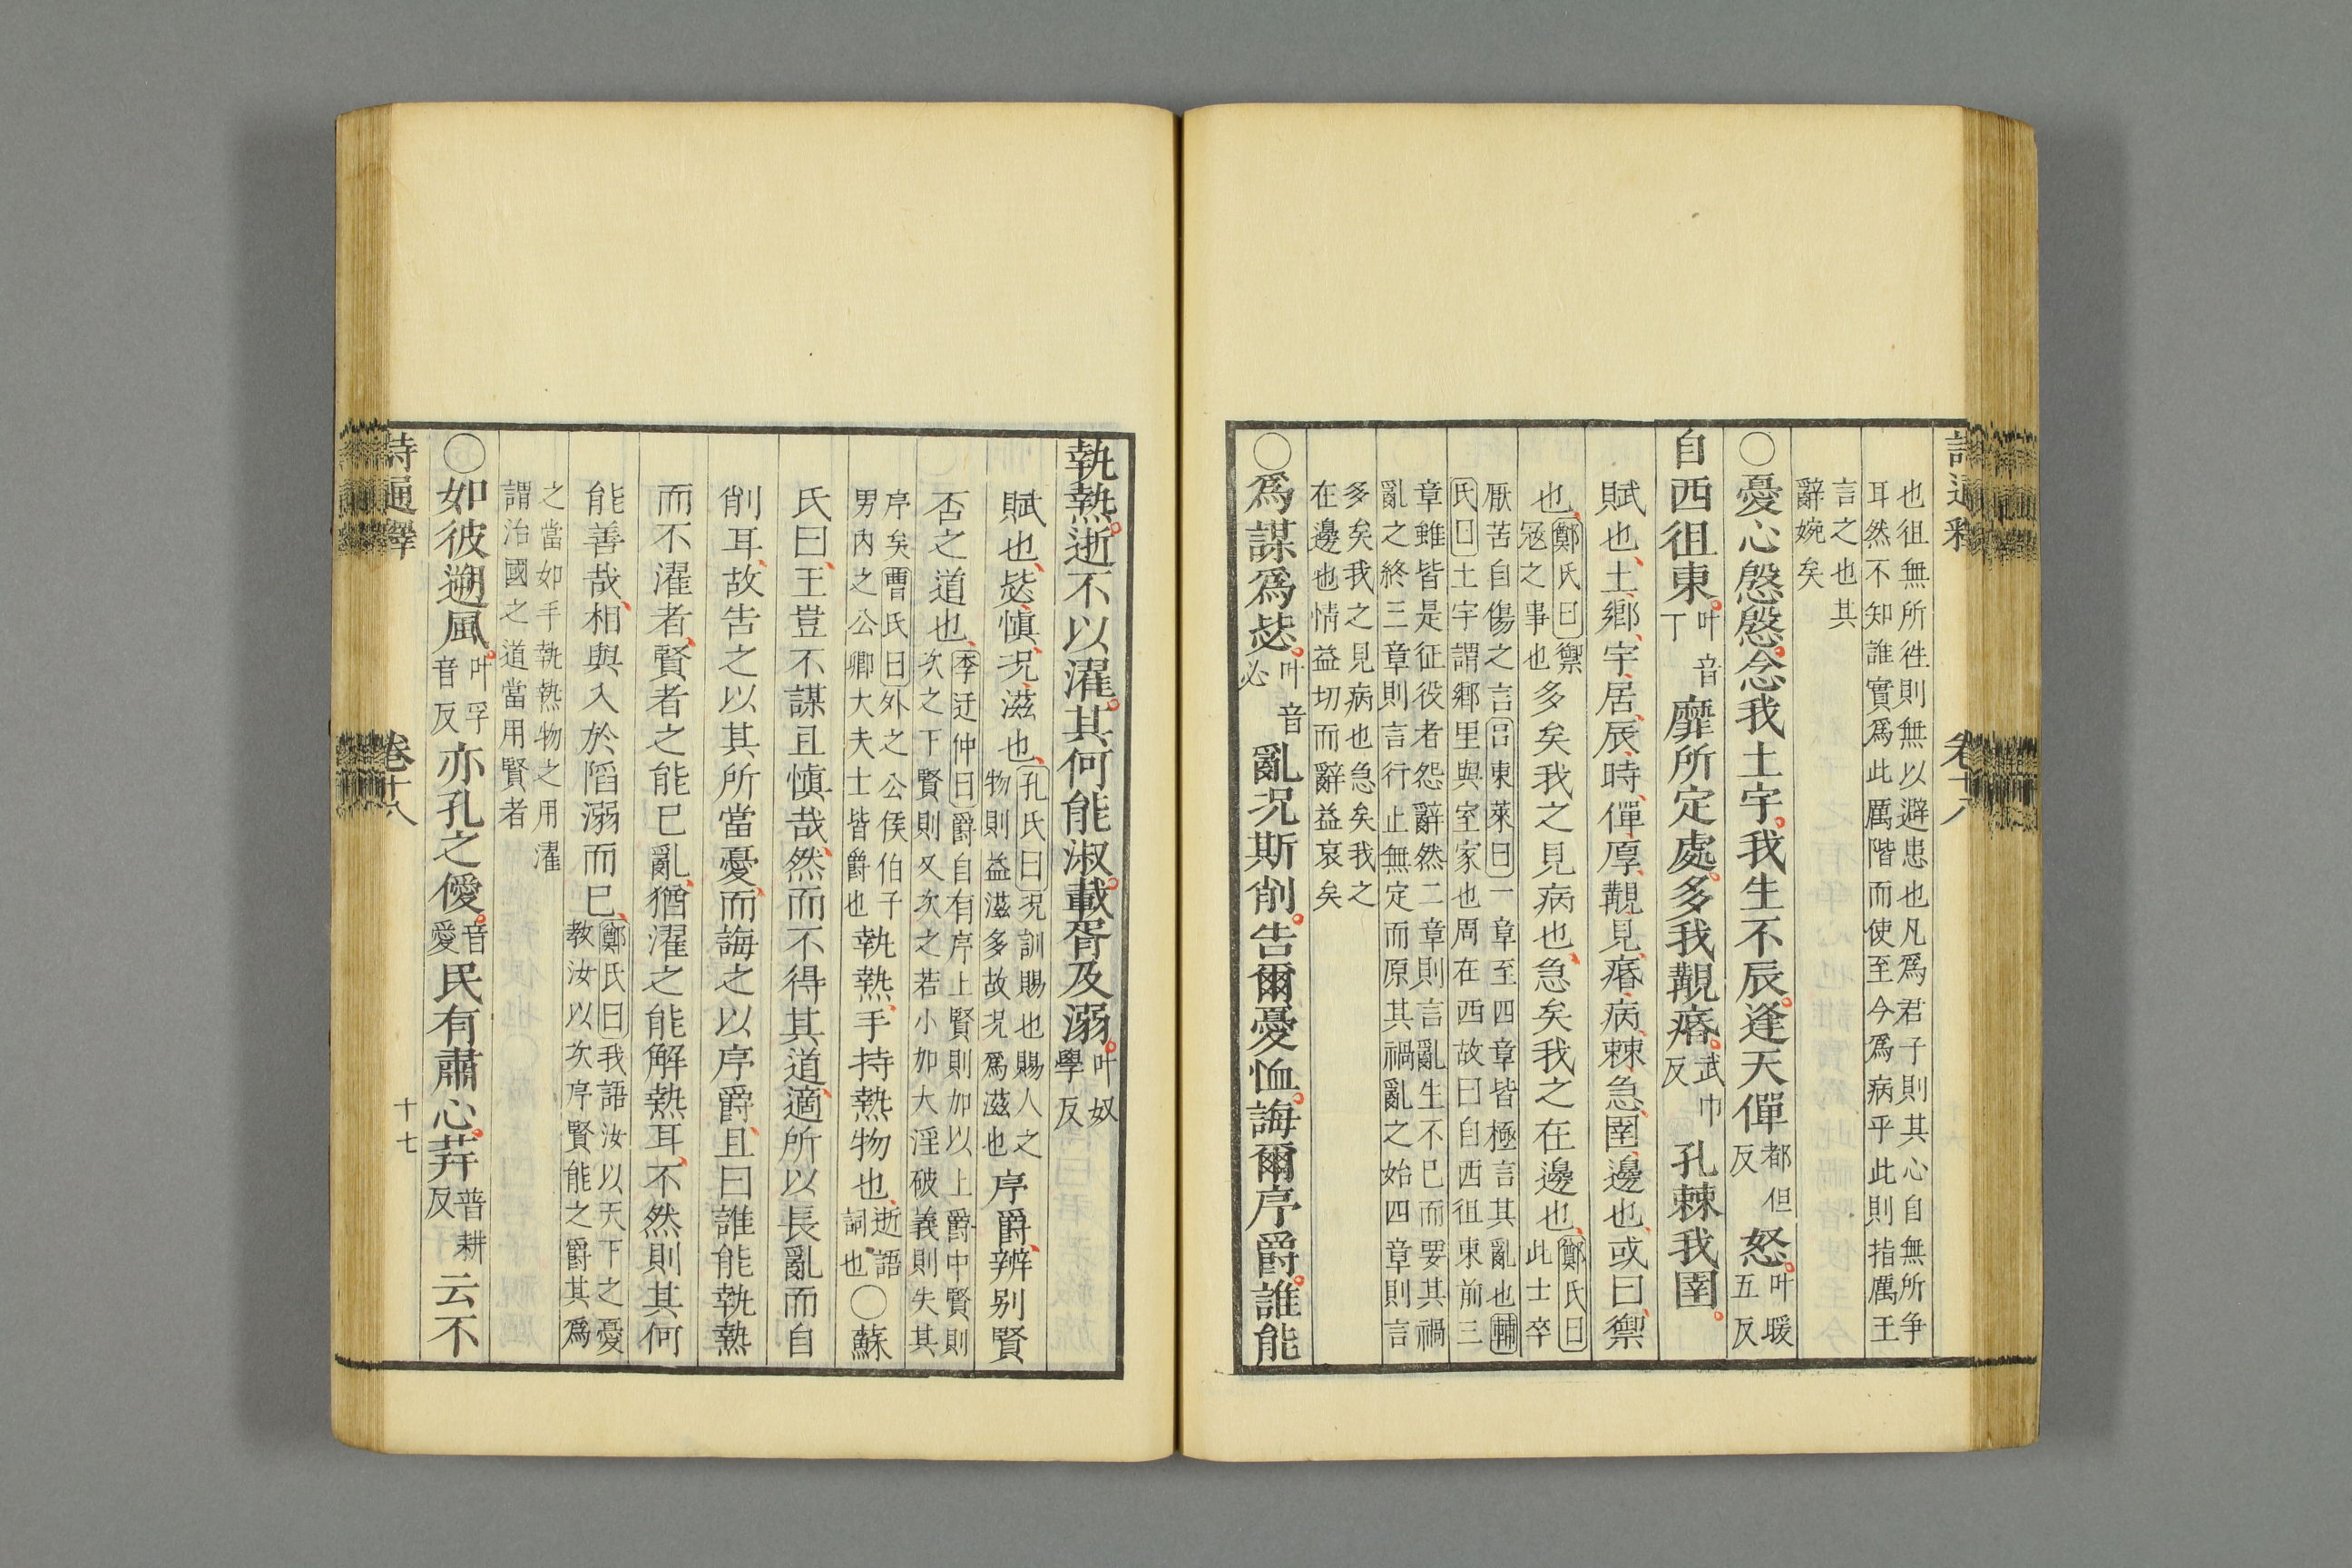 詩通釋 卷十八
也徂無所徃則無以避患也凡爲君子則其心自無所争
耳然不知誰實爲此厲階而使至今爲病乎此則指厲王
言之也其
辭婉矣
○憂心慇慇念我土宇我生不辰逢天僤都但反怒叶暖五反
自西徂東叶音丁靡所定處多我觏痻武巾反孔棘我圉
賦也土鄉宇居辰時僤厚觏見痻病棘急圉邊也或曰禦
也鄭氏曰禦寇之事也多矣我之見病也急矣我之在邊也鄭氏曰此士卒
厭苦自傷之言呂東萊曰一章至四章皆極言其亂也輔
氏曰土宇謂鄉里與室家也周在西故曰自西徂東前三
章雖皆是征役者怨辭然二章則言亂生不已而要其禍
亂之終三章則言行止無定而原其禍亂之始四章則言
多矣我之見病也急矣我之
在邊也情益切而辭益哀矣
○爲謀爲毖叶音必亂况斯削告爾憂恤誨爾序爵誰能
執熱逝不以濯其何能淑載胥及溺叶奴學反
賦也毖慎况滋也孔氏曰况訓賜也賜人之物則益滋多故况爲滋也序爵辨别賢
否之道也李迂仲曰爵自有序上賢則加以上爵中賢則次之下賢則又次之若小加大淫破義則失其
序矣曹氏曰外之公侯伯子男内之公卿大夫士皆爵也執熱手持熱物也逝語詞也○蘇
氏曰王豈不謀且慎哉然而不得其道適所以長亂而自
削耳故告之以其所當憂而誨之以序爵且曰誰能執熱
而不濯者賢者之能已亂猶濯之能解熱耳不然則其何
能善哉相與入於陷溺而已鄭氏曰我語汝以天下之憂教汝以次序賢能之爵其爲
之當如手執熱物之用濯
謂治國之道當用賢者
○如彼遡風叶孚音反亦孔之僾音愛民有肅心荓普耕反云不
詩通釋 卷十八 十七